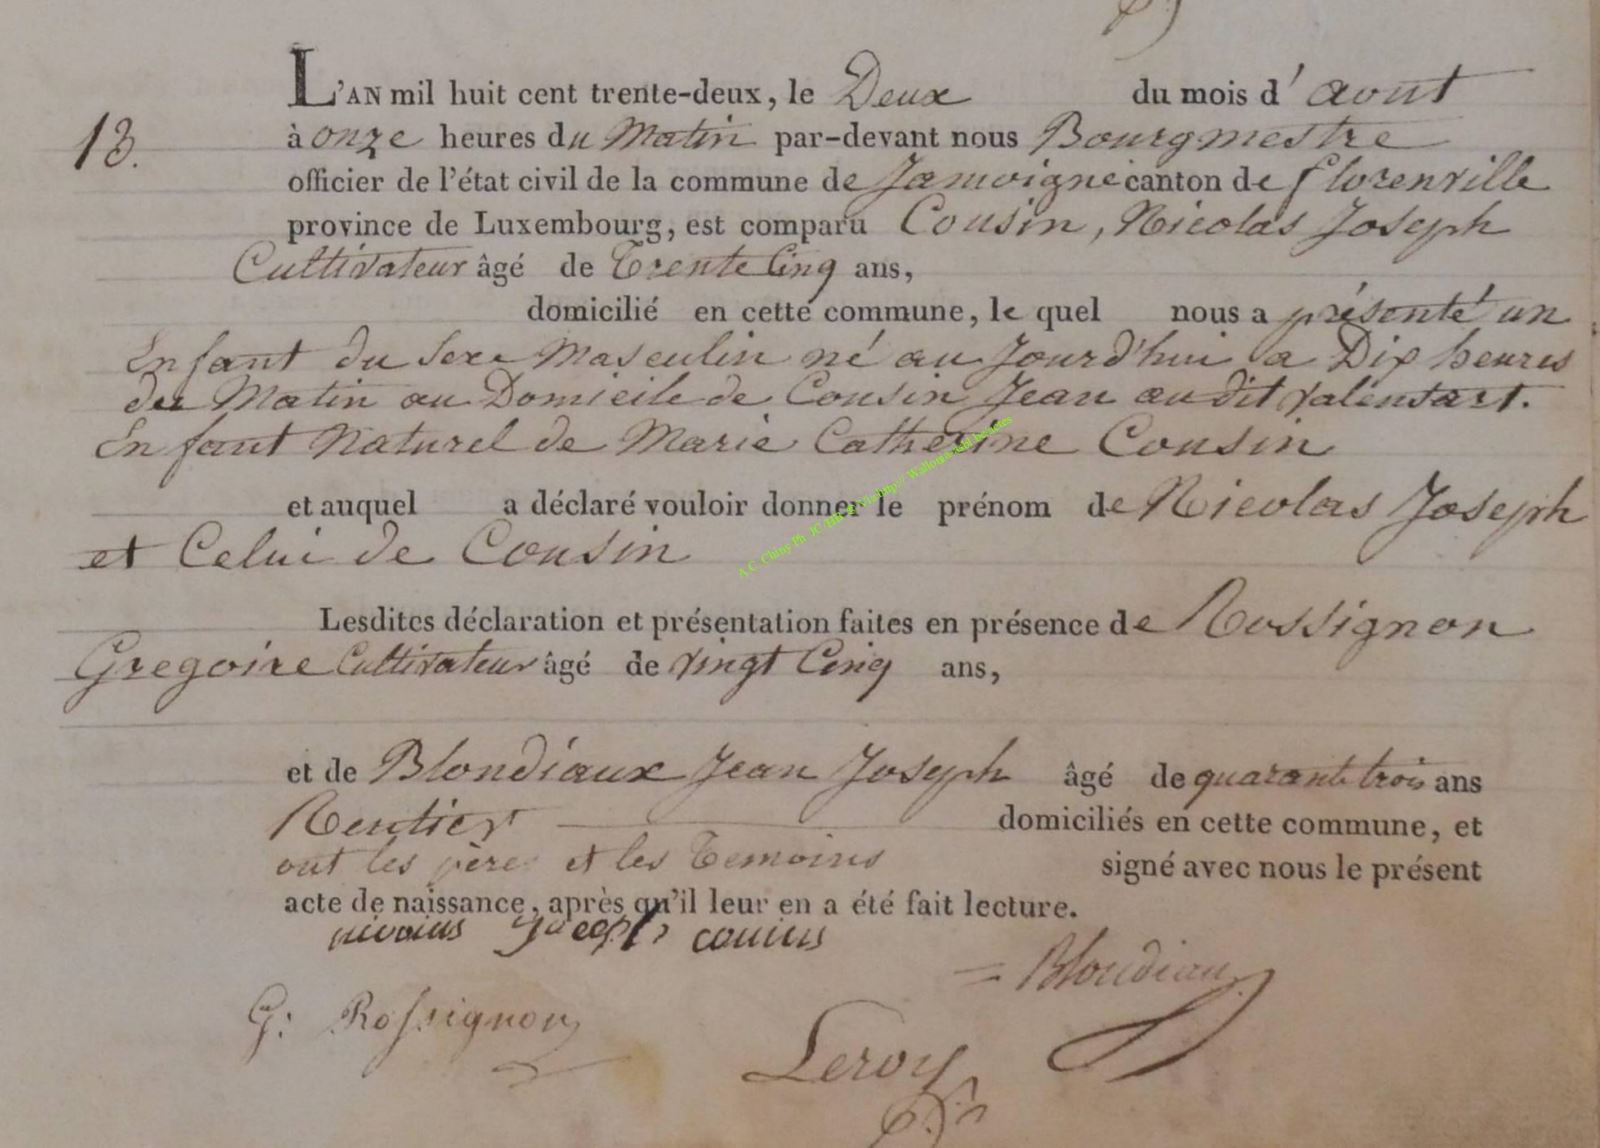 L'AN mil huit cent trente-deux, le Deux du mois d'aout
13.
à onze heures du Matin par-devant nous Bourgmestre
officier de l'état civil de la commune de Jamoigne canton de florenville
province de Luxembourg, est comparu Cousin, Nicolas Joseph
Cultivateur âgé de Trente Cinq ans,
domicilié en cette commune, le quel nous a présenté un
Enfant du sexe Masculin né au Jourd'hui a Dix heures
du Matin au Domicile de Cousin Jean au dit valensart.
Enfant Naturel de Marie Catherine Cousin
et auquel a déclaré vouloir donner le prénom de Nicolas Joseph
et Celui de Cousin
Lesdites déclaration et présentation faites en présence de Rossignon
Gregoire Cultivateur âgé de vingt Cinq ans,
et de Blondiaux Jean Joseph âgé de quarante trois ans
Rentier domiciliés en cette commune, et
ont les père et les Temoins signé avec nous le présent
acte de naissance, après qu'il leur en a été fait lecture.
cousin
Blondiaux
G: Rossignon
Leroy